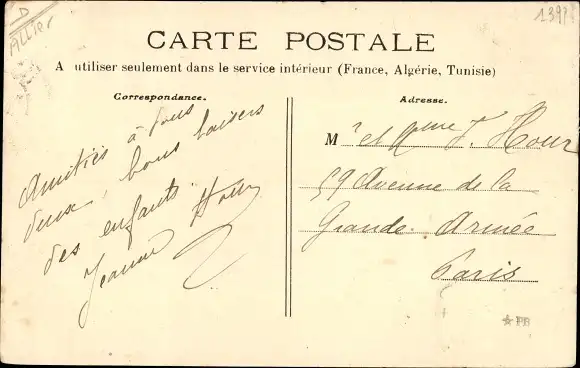 D
Allier
CARTE POSTALE
A utiliser seulement dans le service intérieur (France, Algérie, Tunisie)
Correspondance.
Amitiés à tous
deux, bons baisers
des enfants
Adresse.
Mr et Mme J. Hour
59 Avenue de la
Grande Armée
Paris